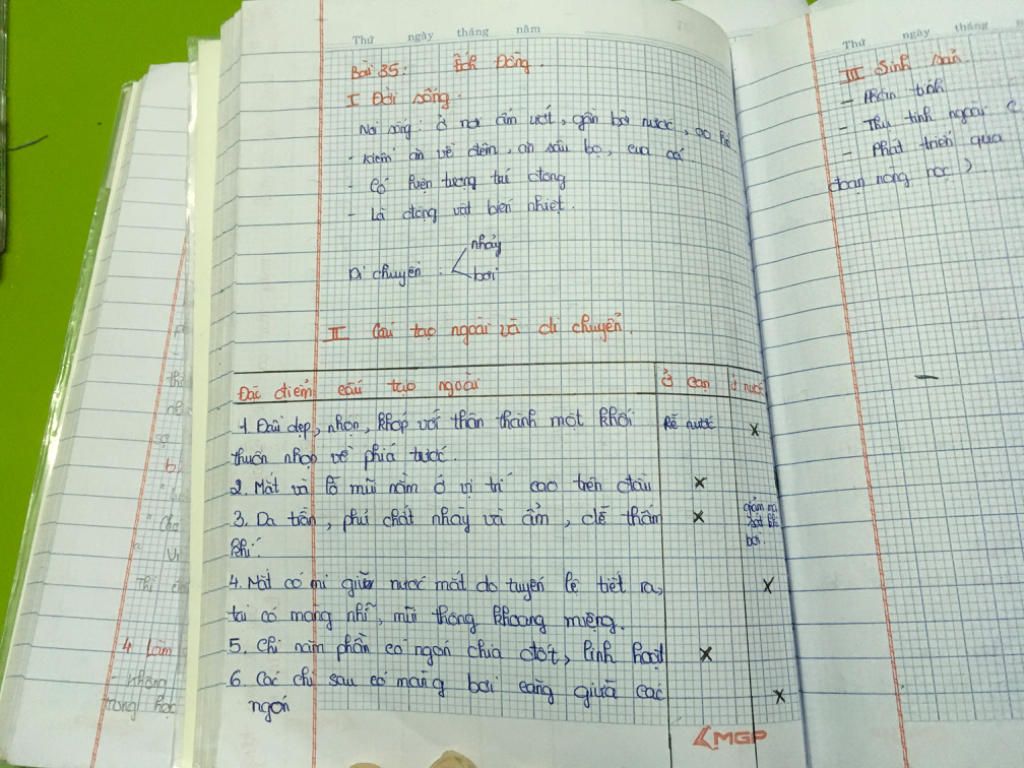 Thứ ngày tháng năm
Bài 35: Ếch Đồng.
I Đời sống.
Nơi sống: ở nơi ẩm ướt, gần bờ nước, ao
- Kiếm ăn về đêm, ăn sâu bọ, cua cá
- Có hiện tượng trú đông
- Là động vật biến nhiệt.
nhảy
Di chuyển
bơi
II Cấu tạo ngoài và di chuyển.
Đặc điểm cấu tạo ngoài ở cạn ở nước
1. Đầu dẹp, nhọn, khớp với thân thành một khối rẽ nước x
thuôn nhọn về phía trước.
2. Mắt và lỗ mũi nằm ở vị trí cao trên đầu x
3. Da trần, phủ chất nhày và ẩm, dễ thấm x giảm ma
khí. sát khi
bơi
4. Mắt có mi giữ nước mắt do tuyến lệ tiết ra, x
tai có màng nhĩ, mũi thông khoang miệng.
5. Chi năm phần có ngón chia đốt, linh hoạt x
6. Các chi sau có màng bơi căng giữa các x
ngón
MGP
Thứ ngày tháng
III Sinh sản.
- Phân tính
- Thụ tinh ngoài
- Phát triển qua
đoạn nòng nọc)
4 Làm
- không
trong học